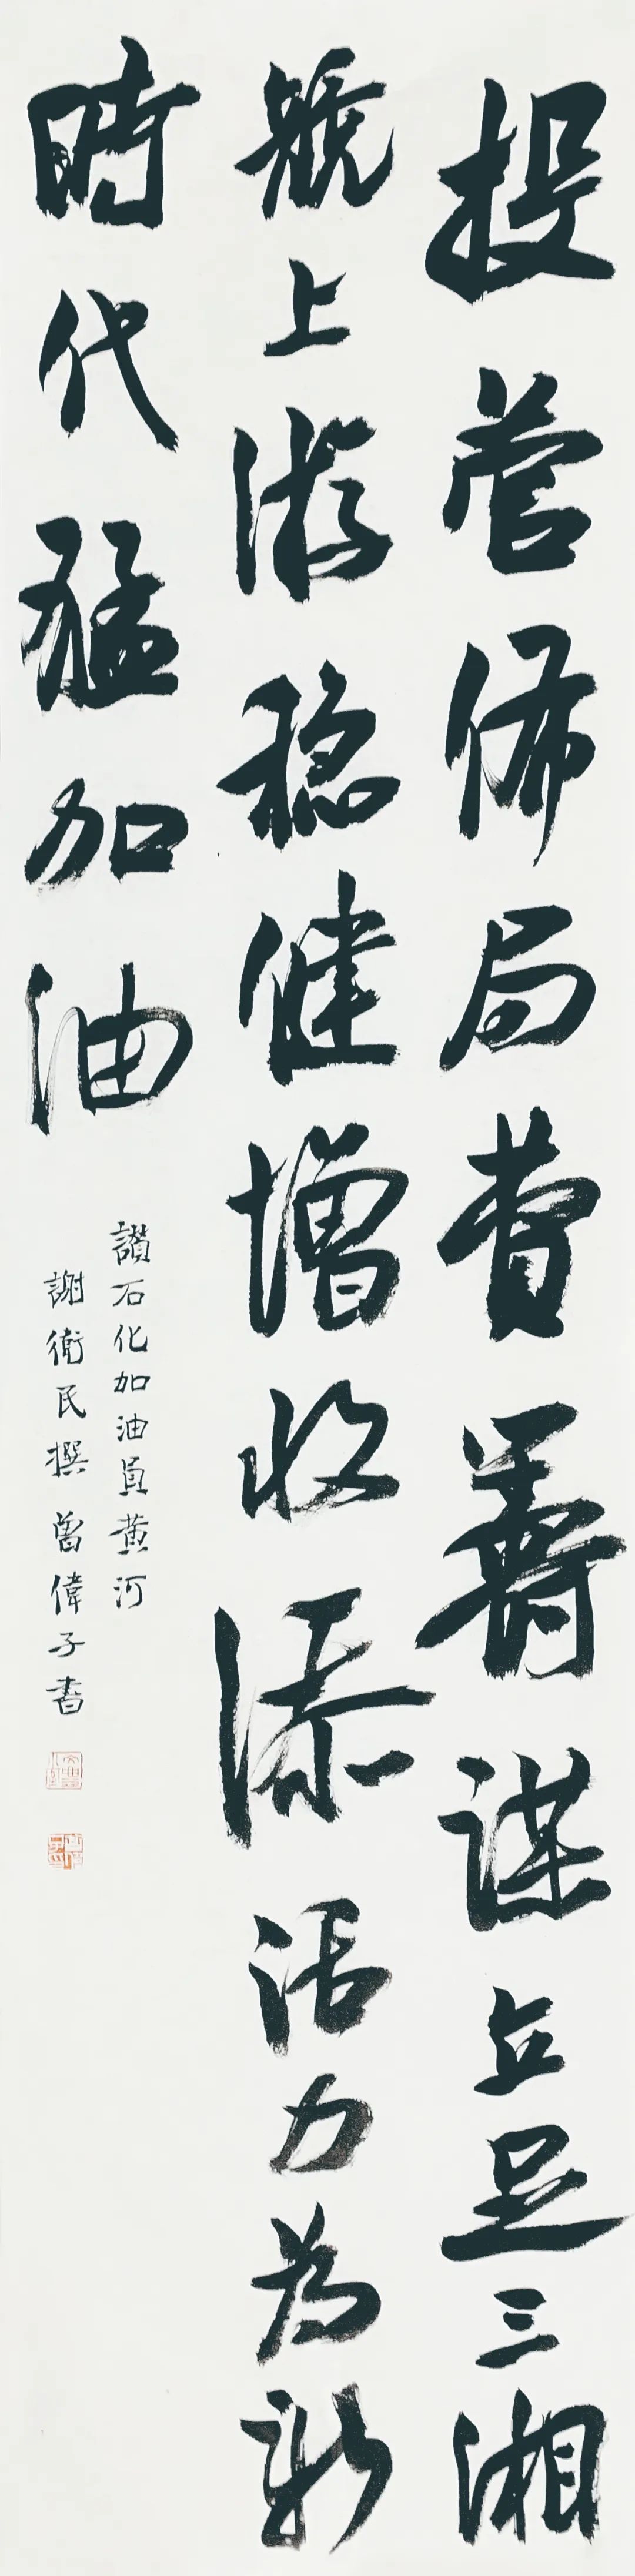 投管佈局費籌謀立足三湘
競上游穩健增收添活力為新
時代猛加油
讚石化加油員黃河
謝衛民撰 曾偉子書